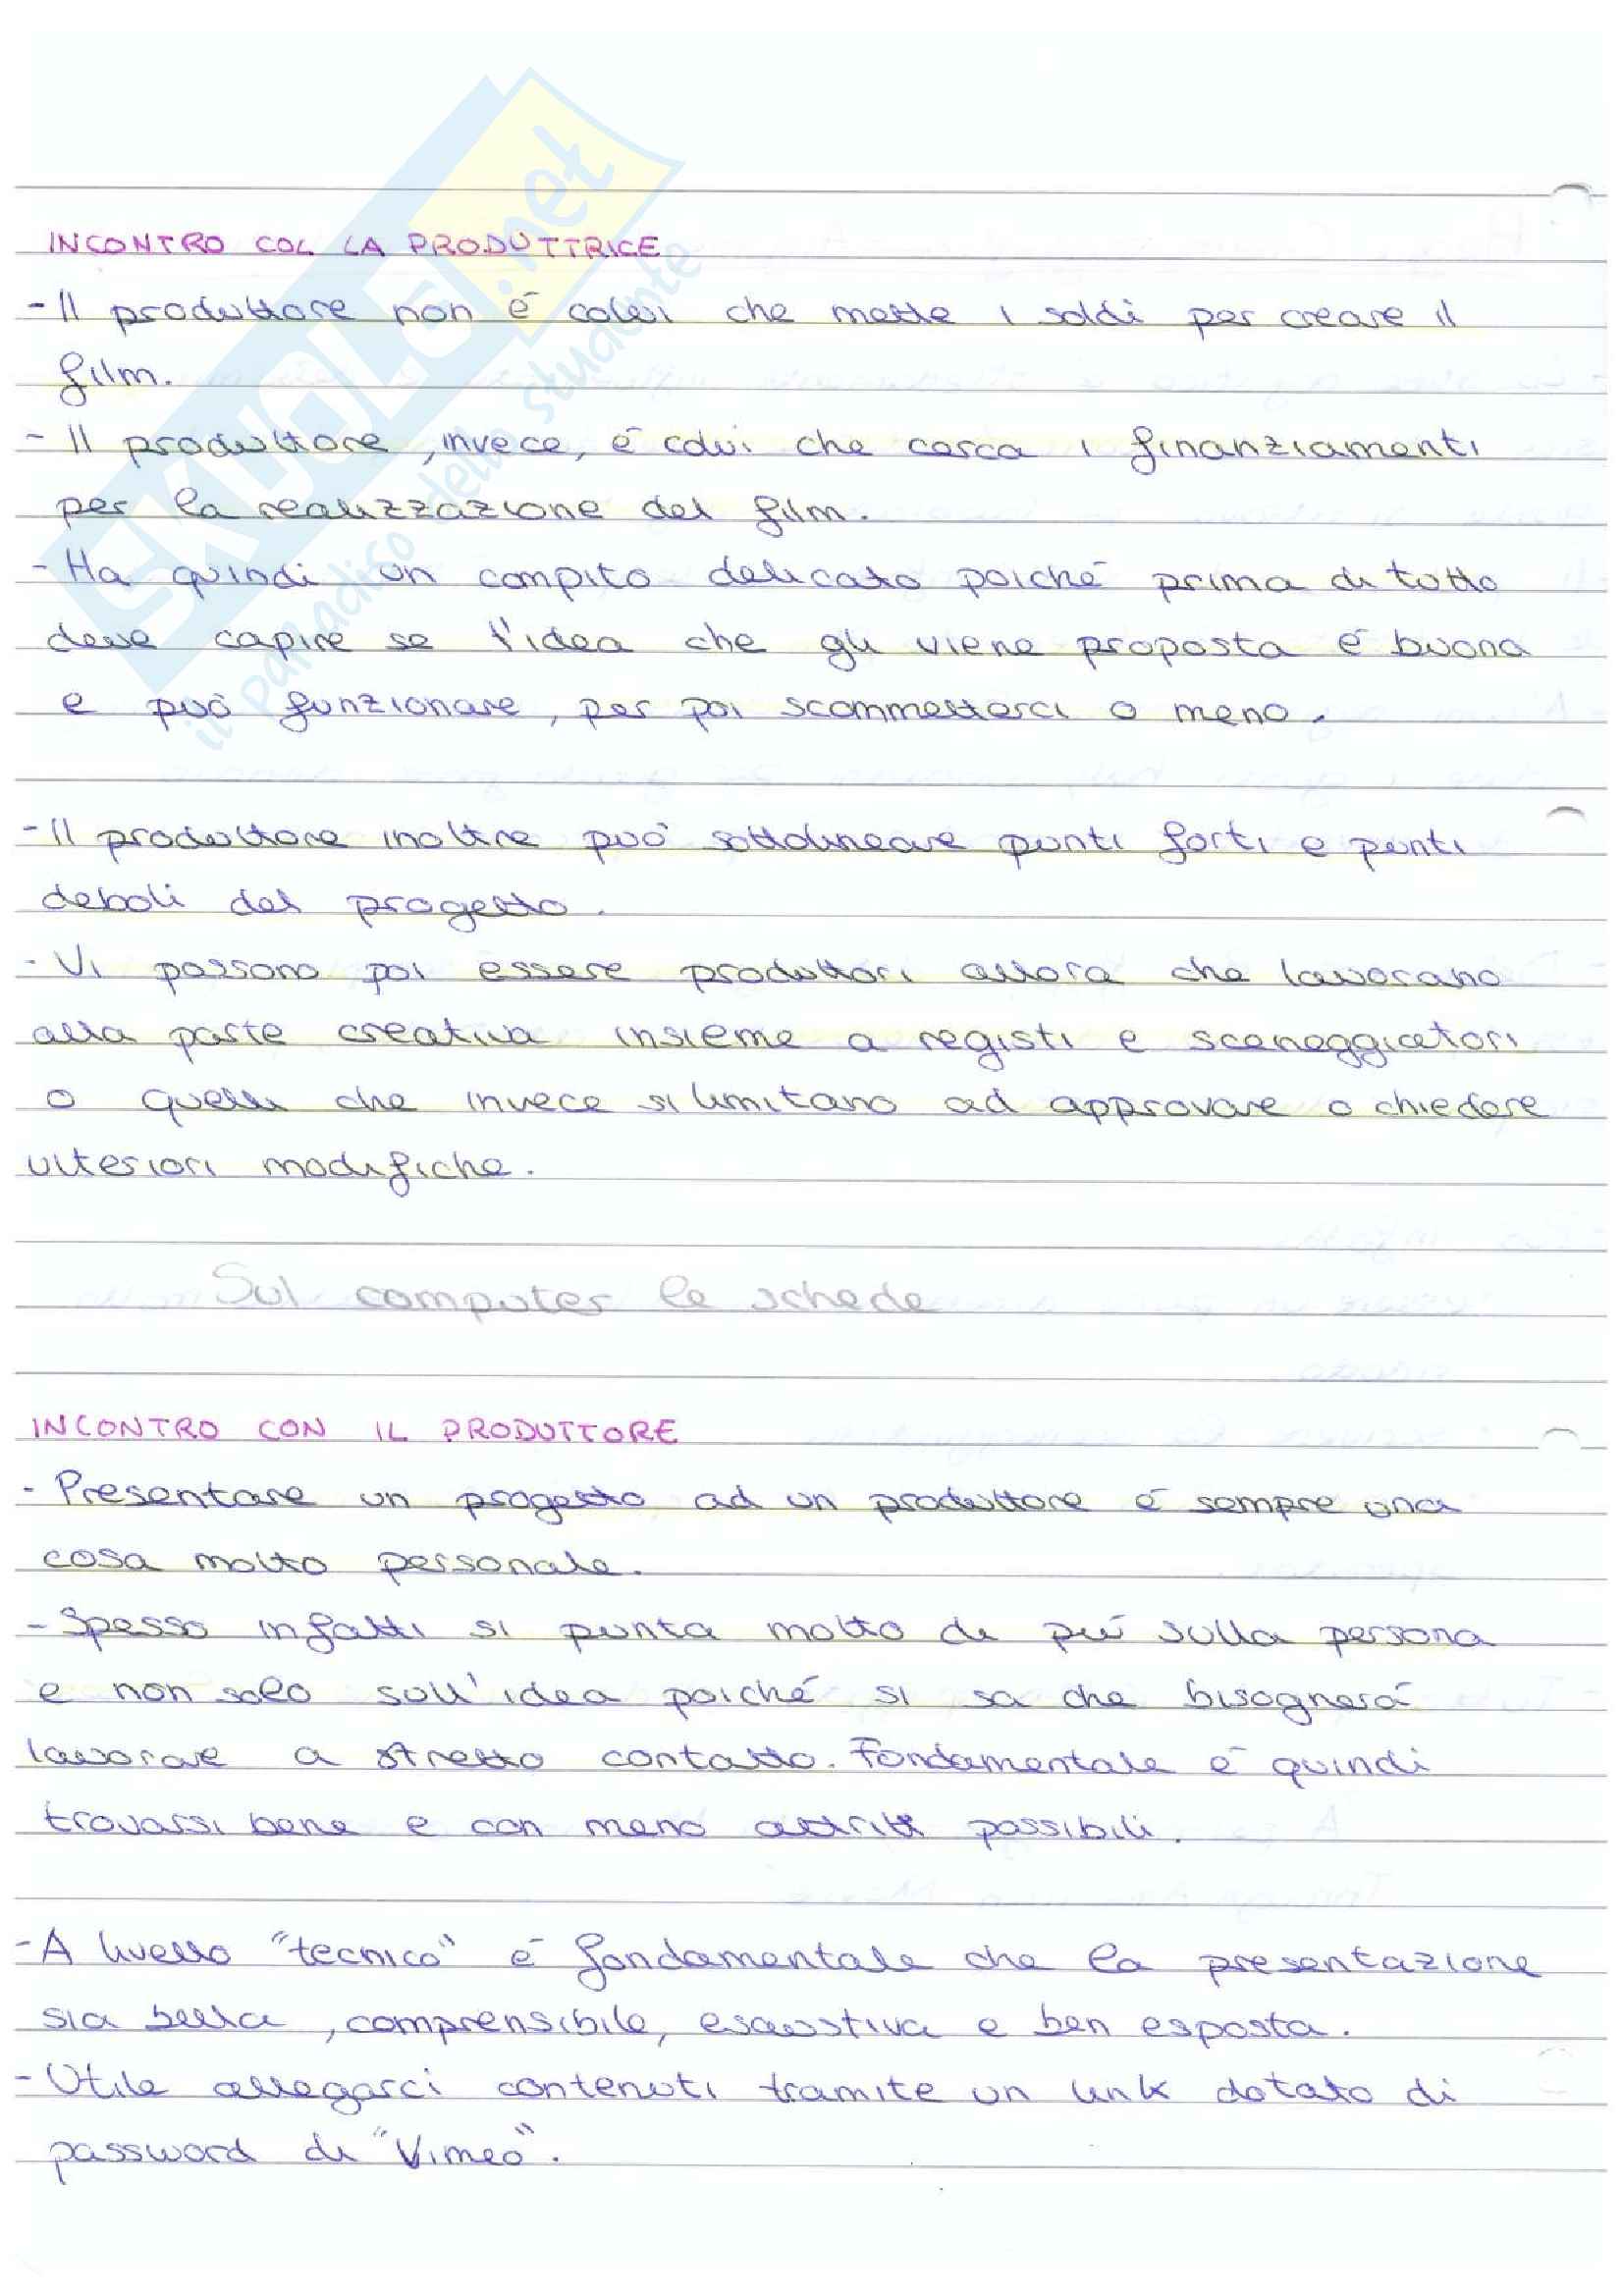 SKUOLA.net
il paradiso dello studente
INCONTRO COL LA PRODUTTRICE
- Il produttore non é colui che mette i soldi per creare il
film.
- Il produttore, invece, é colui che cerca i finanziamenti
per la realizzazione del film.
- Ha quindi un compito delicato poiché prima di tutto
deve capire se l'idea che gli viene proposta é buona
e può funzionare, per poi scommetterci o meno.
- Il produttore inoltre può sottolineare punti forti e punti
deboli del progetto.
- Vi possono poi essere produttori allora che lavorano
alla parte creativa insieme a registi e sceneggiatori
o quelli che invece si limitano ad approvare o chiedere
ulteriori modifiche.
Sul computer le schede
INCONTRO CON IL PRODUTTORE
- Presentare un progetto ad un produttore é sempre una
cosa molto personale.
- Spesso infatti si punta molto di più sulla persona
e non solo sull'idea poiché si sa che bisognerá
lavorare a stretto contatto. Fondamentale é quindi
trovarsi bene e con meno attriti possibili.
- A livello "tecnico" é fondamentale che la presentazione
sia bella, comprensibile, esaustiva e ben esposta.
- Utile allegarci contenuti tramite un link dotato di
password di "Vimeo".